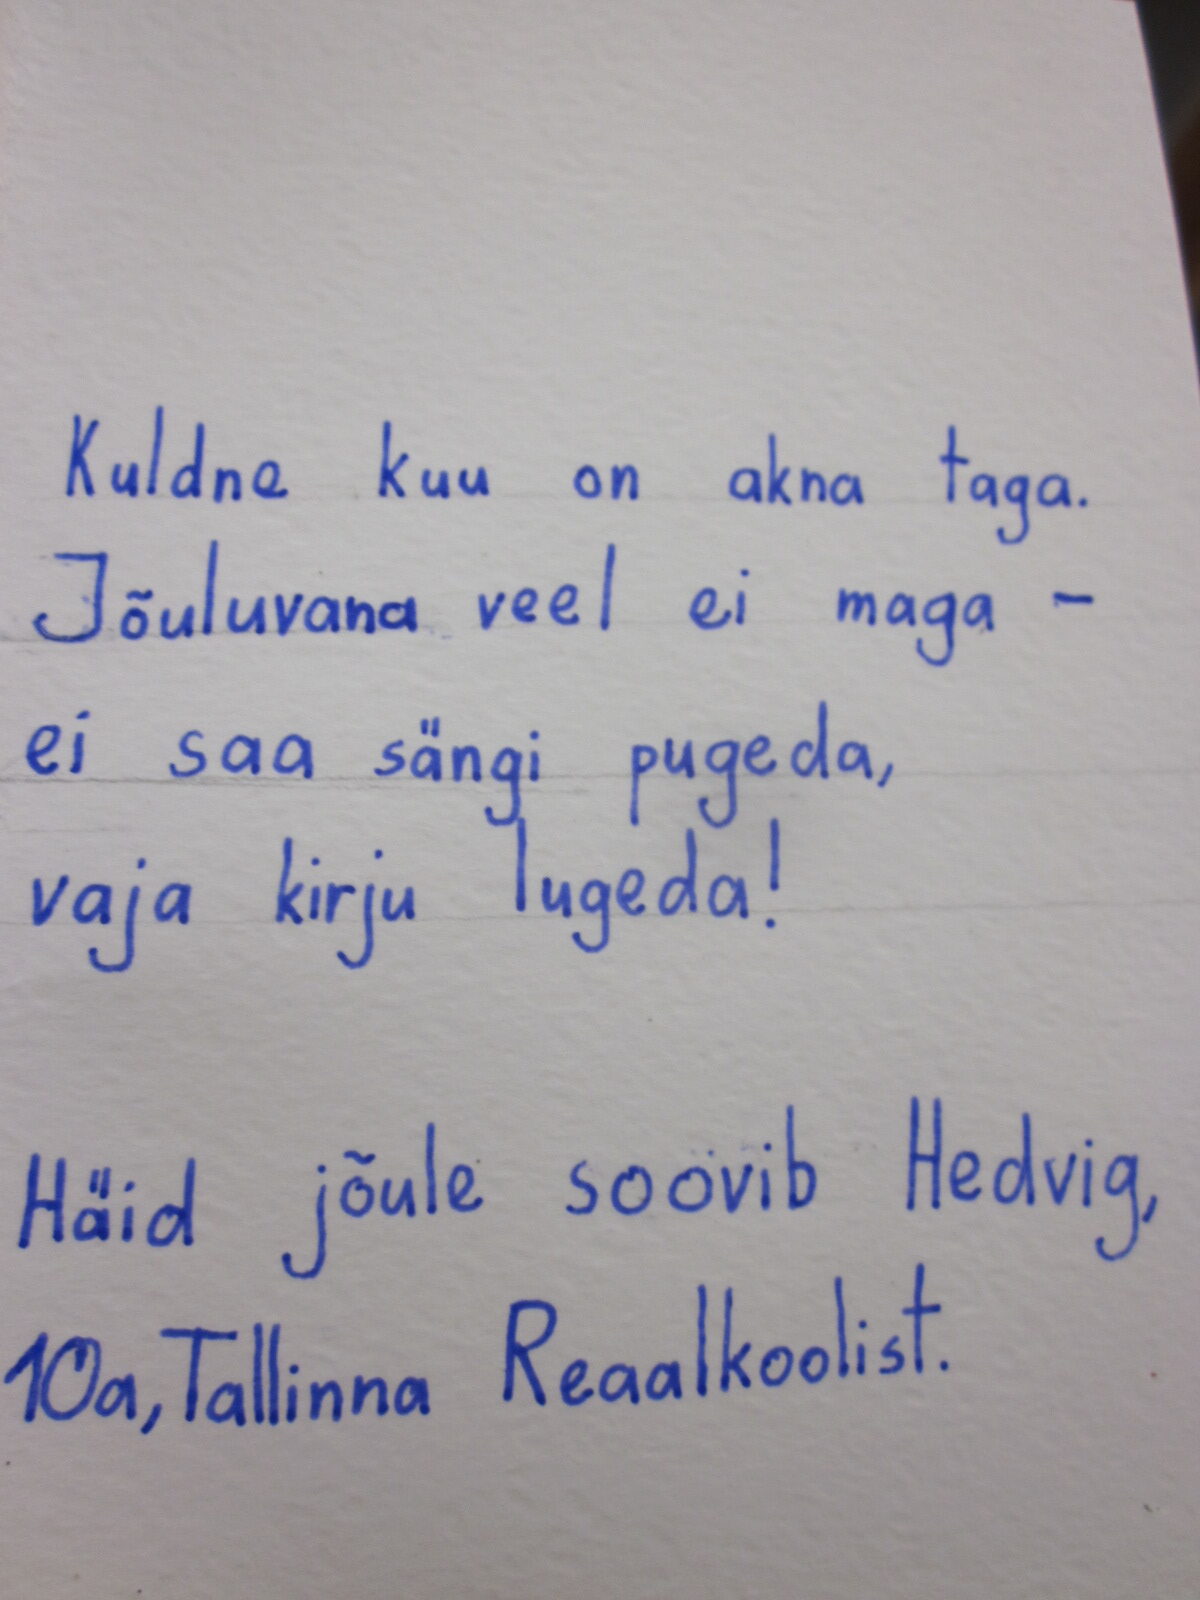 Kuldne kuu on akna taga.
Jõuluvana veel ei maga -
ei saa sängi pugeda,
vaja kirju lugeda!
Häid jõule soovib Hedvig,
10a, Tallinna Reaalkoolist.